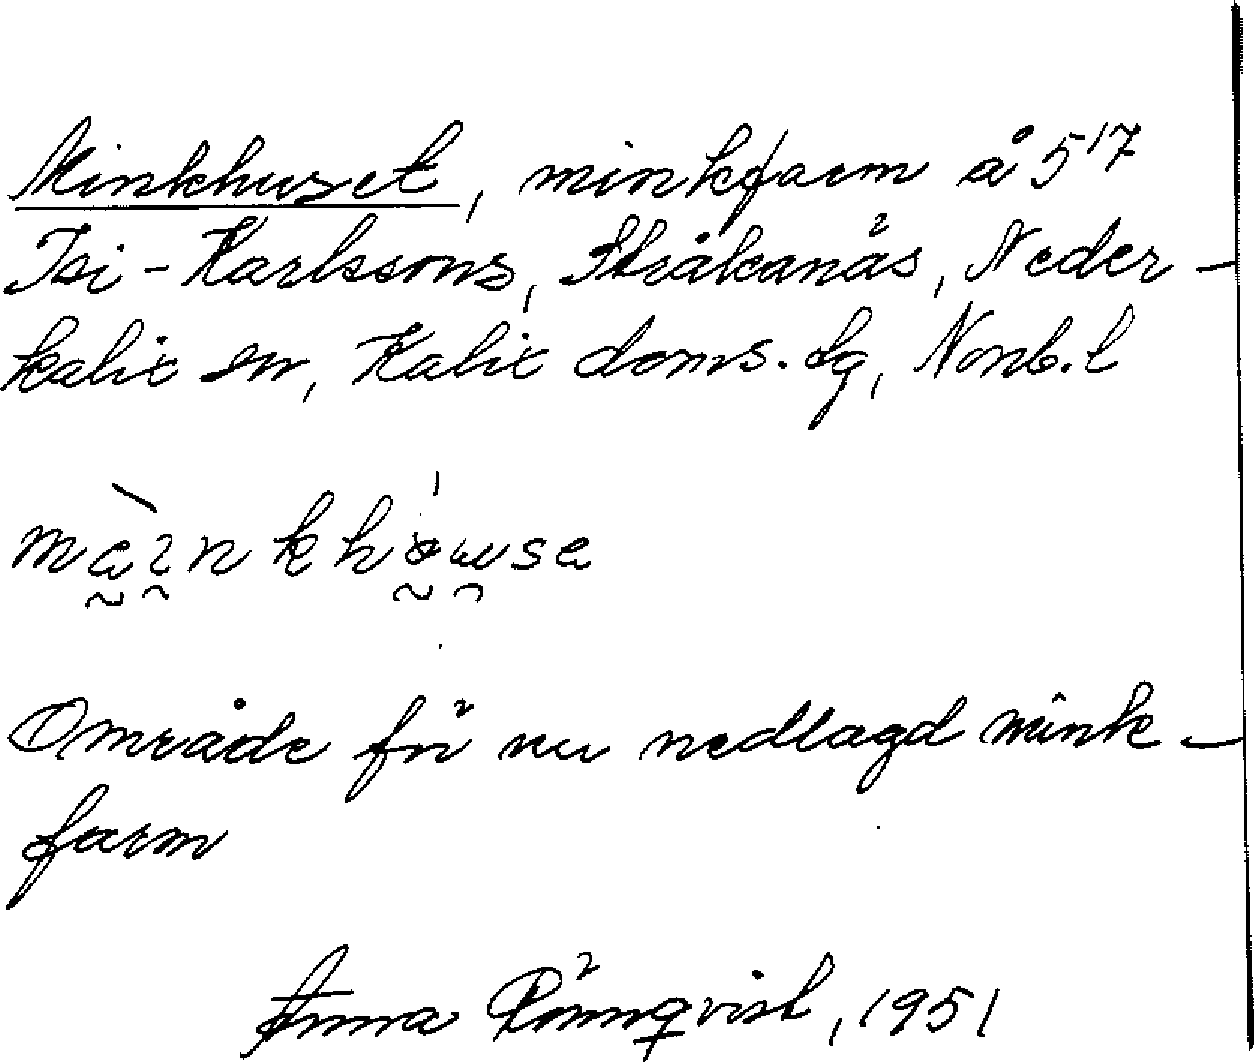 Minkhuset, minkfarm å 5¹⁷
Isi-Karlssons, Stråkanäs, Neder-
kalix sn, Kalix doms. lg, Nonb. l
màınkhówsa
Område för nu nedlagd mink-
farm
Anna Rönnqvist, 1951